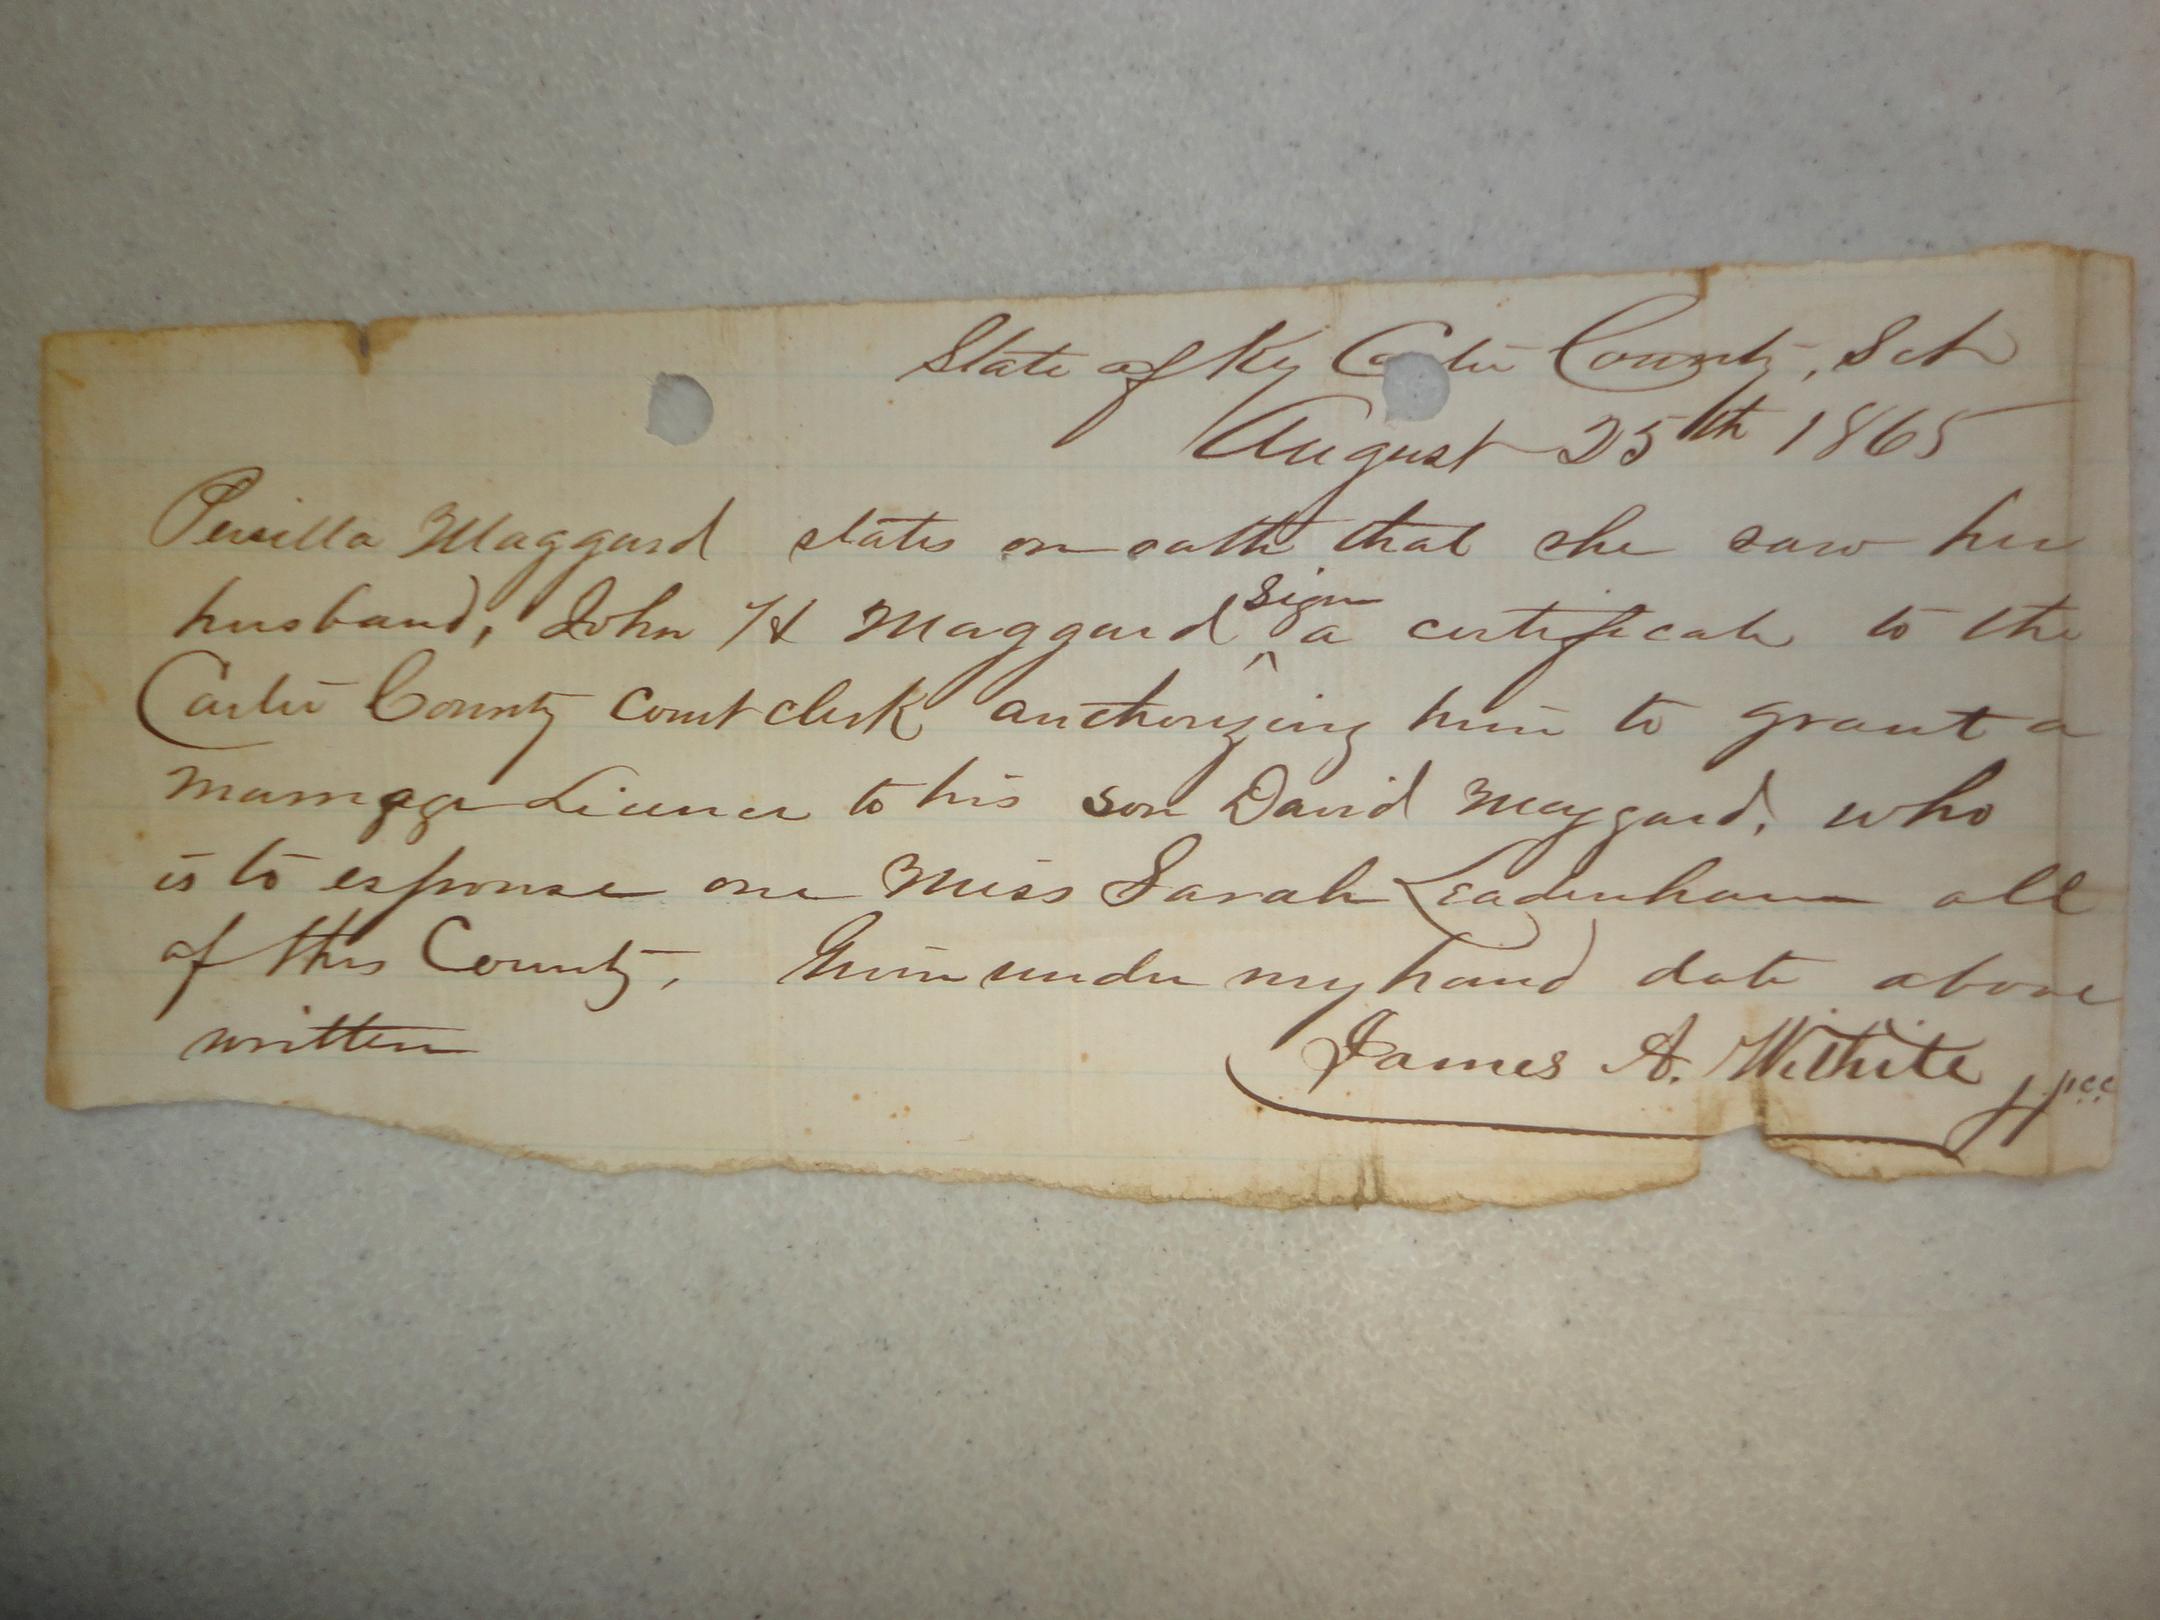 State of Ky Carter County, Sct
August 25th 1865
Percilla Maggard states on oath that she saw her
husband, John H Maggard sign a certificate to the
Carter County court clerk authorizing him to grant a
marriage Licence to his son David Maggard, who
is to espouse one Miss Sarah Leadenham all
of this County, Given under my hand date above
written
James A. Wilhite